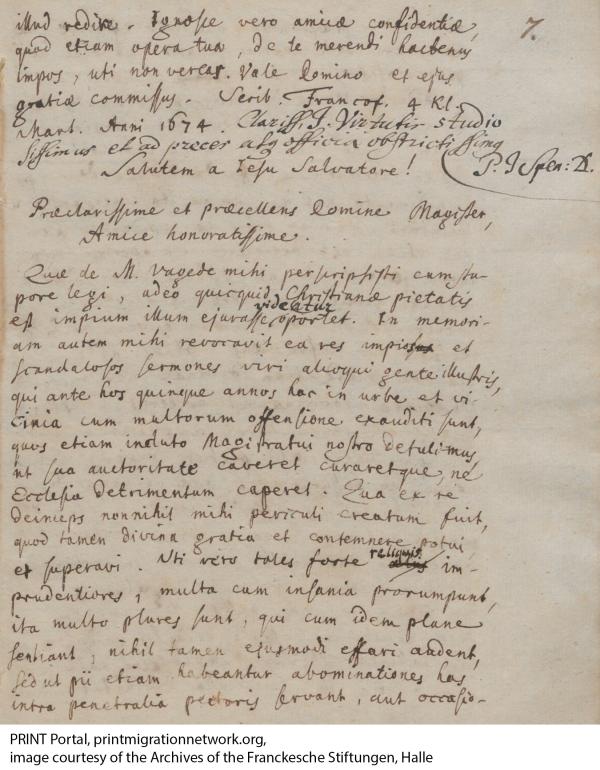 illud redire. Ignosce vero amicæ confidentiæ,
7.
quod etiam opera tua, de te merendi hactenus
impos, uti non verear. Vale Domino et ejus
gratiæ commissus. Scrib. Francof. 4 Kl.
Mart. Anni 1674. Clariss. T. Virtutis studio
sissimus et ad preces atq officia obstrictissimq
P. J Spen: D.
Salutem a Jesu Salvatore!
Præclarissime et præcellens Domine Magister,
Amice honoratissime.
Quæ de M. Vagede mihi perscripsisti cum stu-
pore legi, adeo quicquid Christianæ pietatis
est impium illum ejurasse videatur. In memori-
am autem mihi revocavit ea res impios et
scandalosos sermones viri alioqui gente illustris,
qui ante hos quinque annos hac in urbe et vi-
cinia cum multorum offensione exauditi sunt,
quos etiam incluto Magistratui nostro detulimus,
ut sua auctoritate caveret curaretque, ne
Ecclesia detrimentum caperet. Qua ex re
deinceps nonnihil mihi periculi creatum fuit,
quod tamen divina gratia et contemnere potui
et superavi. Uti vero tales forte reliquis im-
prudentiores, multa cum insania prorumpunt,
ita multo plures sunt, qui cum idem plane
sentiant, nihil tamen ejusmodi effari audent,
sed ut pii etiam habeantur abominationes has
intra penetralia pectoris servant, aut occasio-
PRINT Portal, printmigrationnetwork.org,
image courtesy of the Archives of the Franckesche Stiftungen, Halle